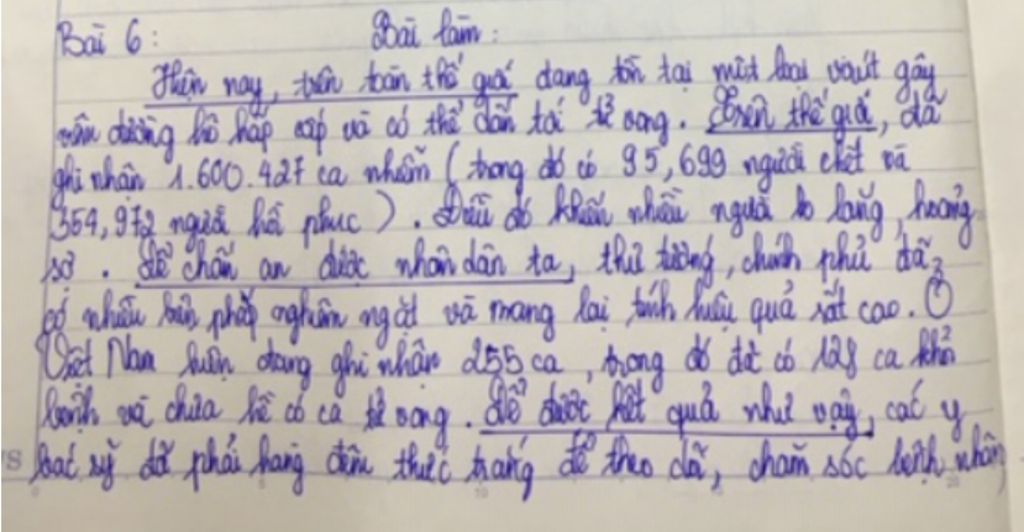 Bài 6: Bài làm:
Hiện nay, trên toàn thế giới đang tồn tại một loại virút gây
viêm đường hô hấp cấp và có thể dẫn tới tử vong. Trên thế giới, đã
ghi nhận 1.600.427 ca nhiễm (trong đó có 95,699 người chết và
354,972 người hồi phục). Điều đó khiến nhiều người lo lắng, hoảng
sợ. Để chấn an được nhân dân ta, thủ tướng, chính phủ đã
có nhiều biện pháp nghiêm ngặt và mang lại tính hiệu quả rất cao. Ở
Việt Nam hiện đang ghi nhận 255 ca, trong đó đã có 128 ca khỏi
bệnh và chưa hề có ca tử vong. Để được kết quả như vậy, các y
bác sỹ đã phải hàng đêm thức trắng để theo dõi, chăm sóc bệnh nhân